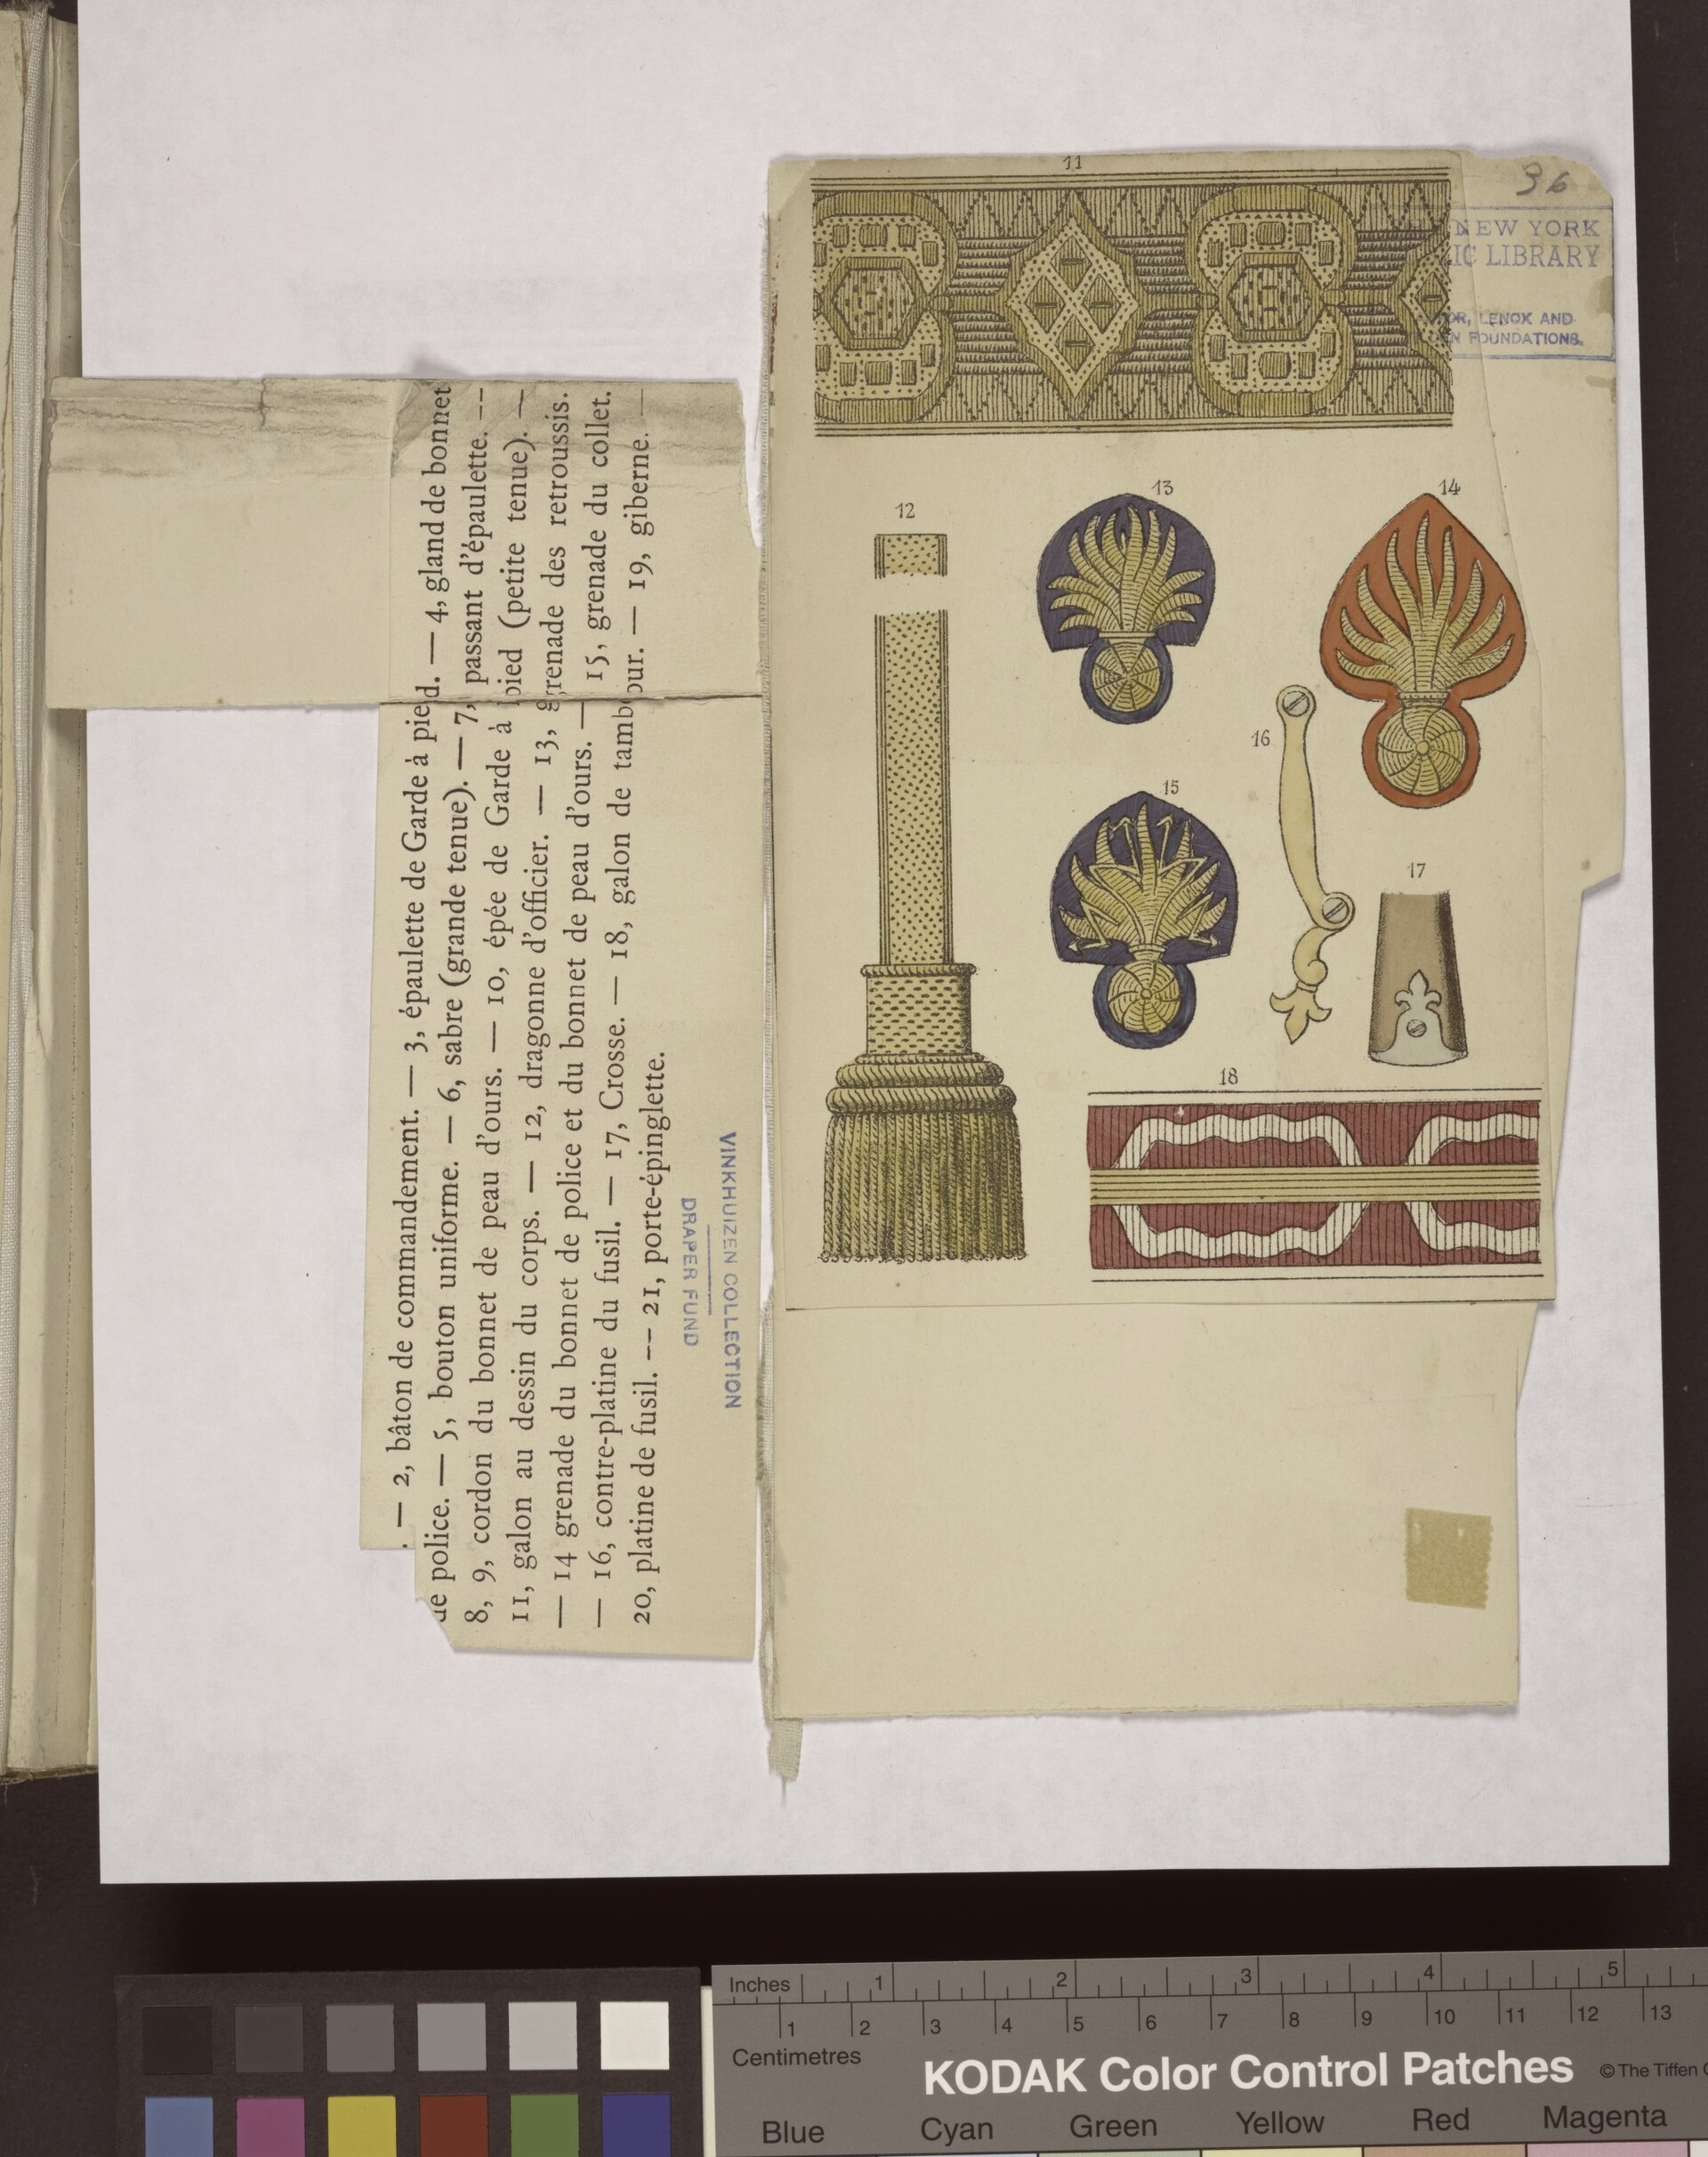 . — 2, bâton de commandement. — 3, épaulette de Garde à pied. — 4, gland de bonnet
de police. — 5, bouton uniforme. — 6, sabre (grande tenue). — 7, passant d'épaulette. --
8, 9, cordon du bonnet de peau d'ours. — 10, épée de Garde à pied (petite tenue). —
11, galon au dessin du corps. — 12, dragonne d'officier. — 13, grenade des retroussis.
— 14 grenade du bonnet de police et du bonnet de peau d'ours. — 15, grenade du collet.
— 16, contre-platine du fusil. — 17, Crosse. — 18, galon de tambour. — 19, giberne. —
20, platine de fusil. -- 21, porte-épinglette.
VINKHUIZEN COLLECTION
DRAPER FUND
11
36
NEW YORK
IC LIBRARY
OR, LENOX AND
N FOUNDATIONS.
12
13
14
16
15
17
18
Inches 1 2 3 4 5
1 2 3 4 5 6 7 8 9 10 11 12 13
Centimetres
KODAK Color Control Patches
© The Tiffen
Blue Cyan Green Yellow Red Magenta